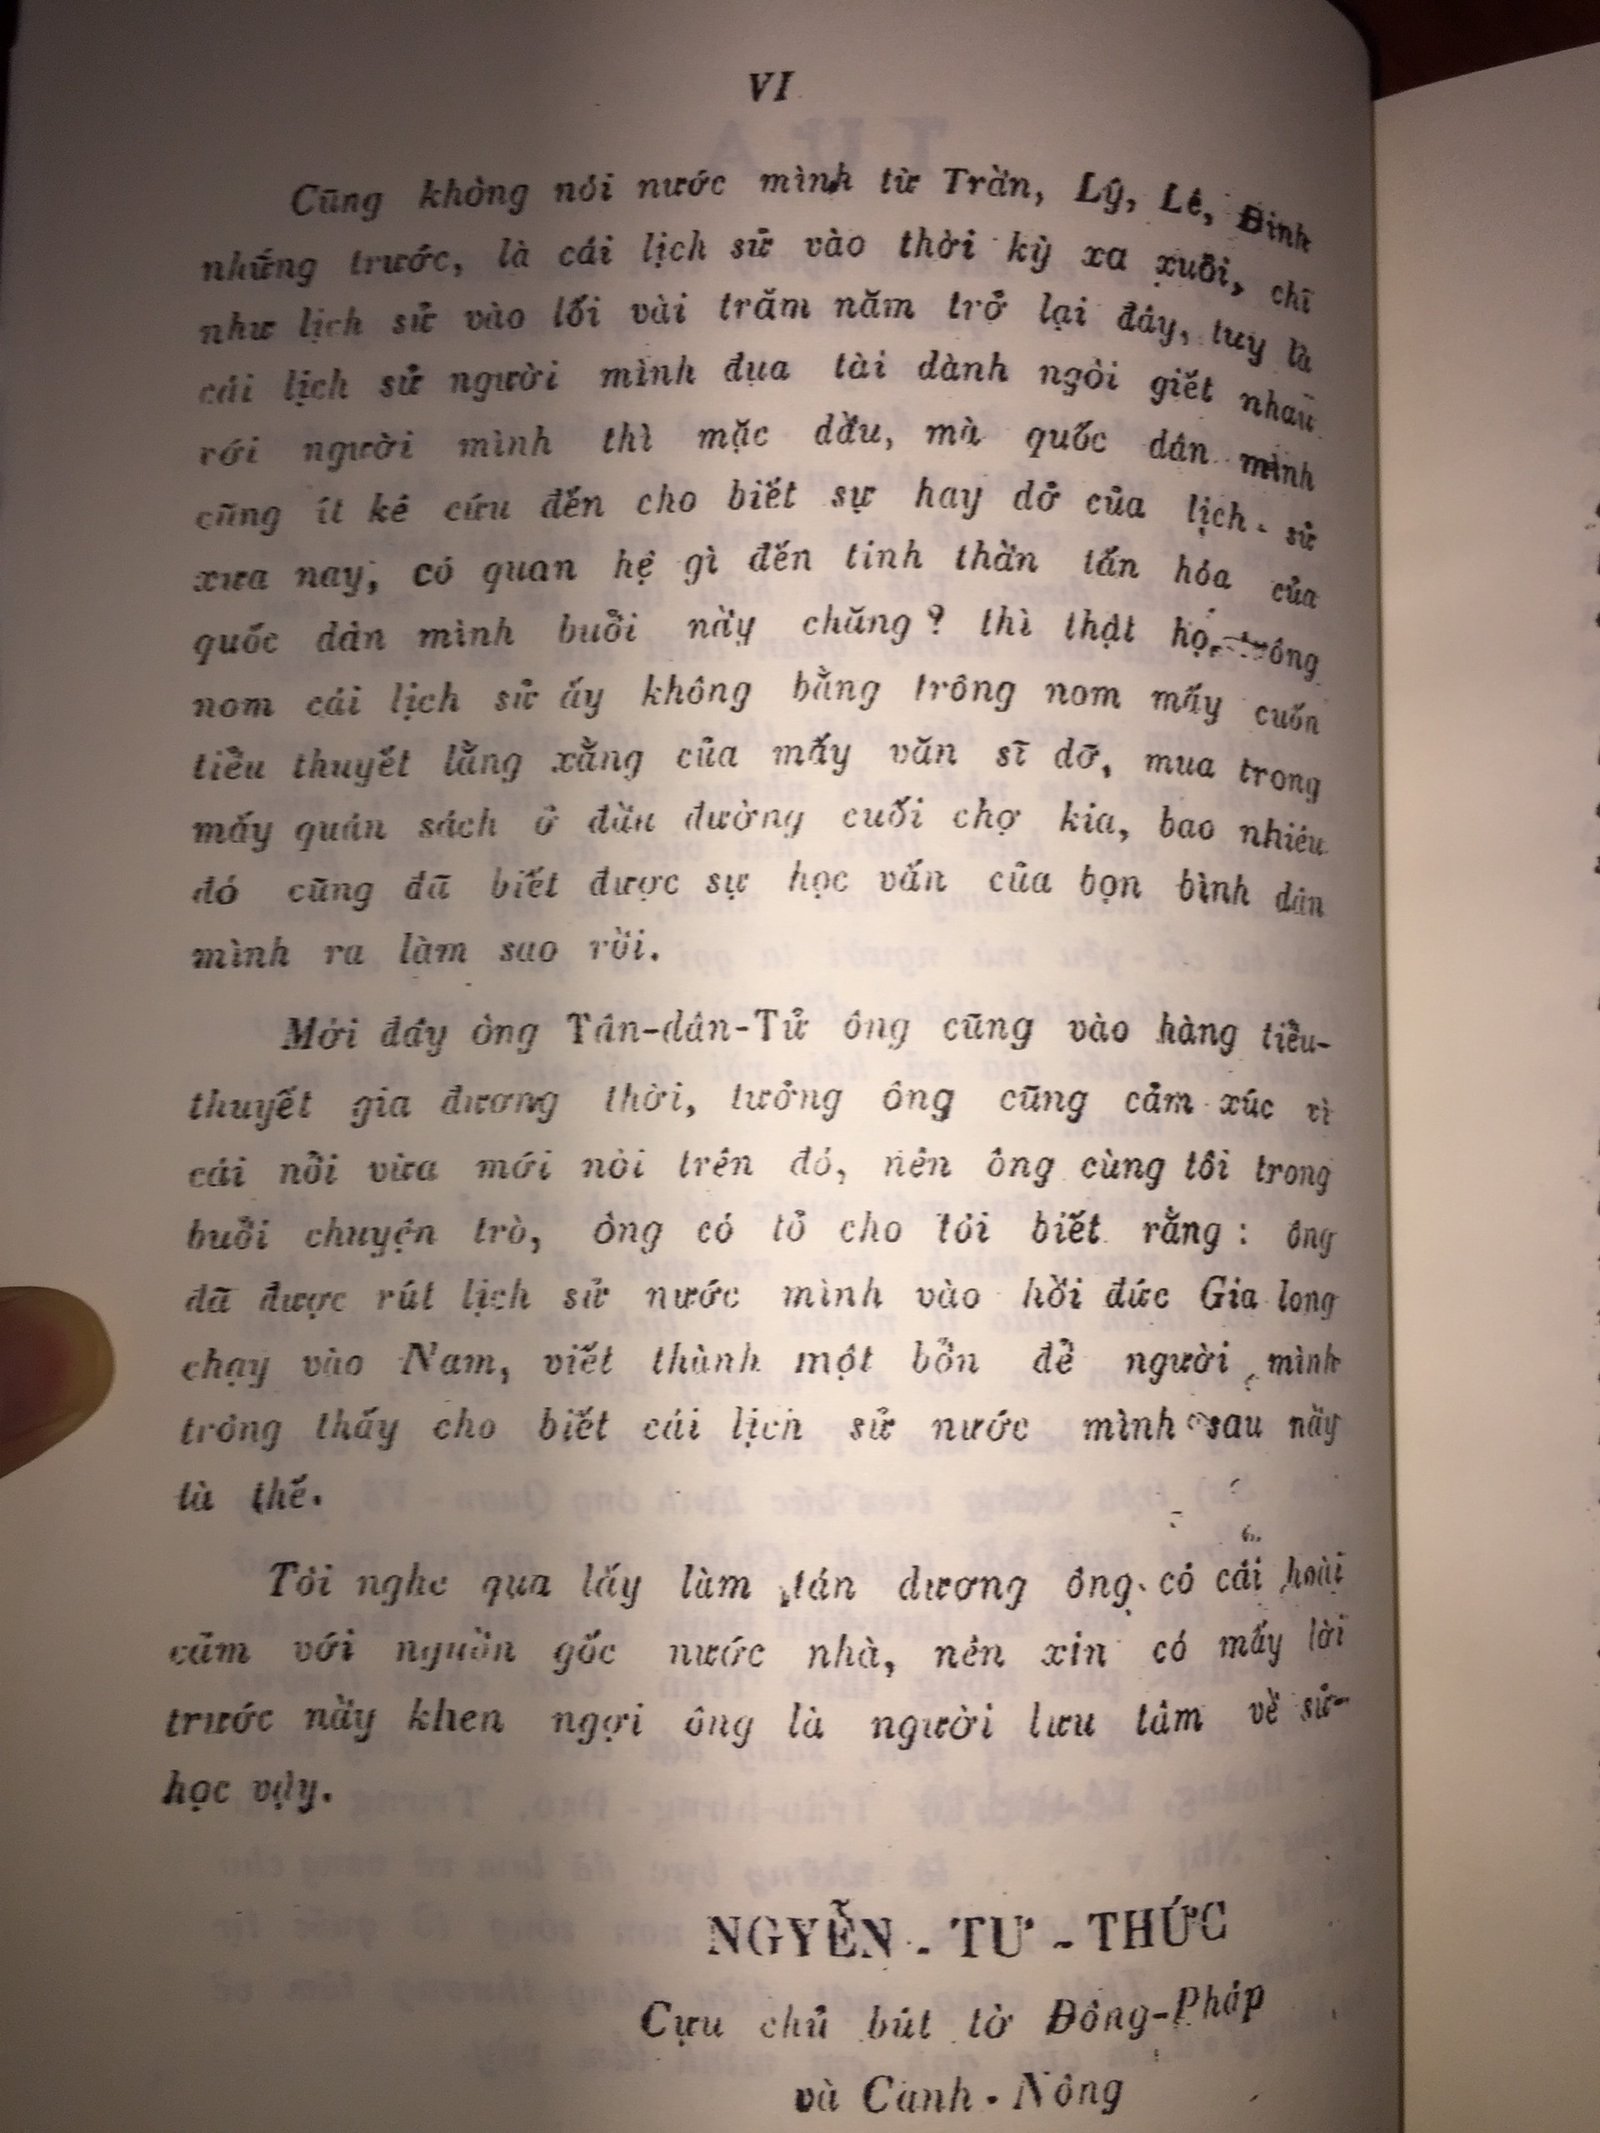 VI
Cũng không nói nước mình từ Trần, Lý, Lê, Đinh
những trước, là cái lịch sử vào thời kỳ xa xuôi, chí
như lịch sử vào lối vài trăm năm trở lại đây, tuy là
cái lịch sử người mình đua tài dành ngôi giết nhau
với người mình thì mặc dầu, mà quốc dân mình
cũng ít kẻ cứu đến cho biết sự hay dở của lịch sử
xưa nay, có quan hệ gì đến tinh thần tấn hóa của
quốc dân mình buổi nầy chăng? thì thật họ trông
nom cái lịch sử ấy không bằng trông nom mấy cuốn
tiểu thuyết lằng xằng của mấy văn sĩ dỡ, mua trong
mấy quán sách ở đầu đường cuối chợ kia, bao nhiêu
đó cũng đã biết được sự học vấn của bọn bình dân
mình ra làm sao rồi.
Mới đây ông Tân-dân-Tử ông cũng vào hàng tiểu-
thuyết gia đương thời, tưởng ông cũng cảm xúc vì
cái nỗi vừa mới nói trên đó, nên ông cùng tôi trong
buổi chuyện trò, ông có tỏ cho tôi biết rằng: ông
đã được rút lịch sử nước mình vào hồi đức Gia long
chạy vào Nam, viết thành một bổn để người mình
trông thấy cho biết cái lịch sử nước mình sau nầy
là thế.
Tôi nghe qua lấy làm tán dương ông có cái hoài
cãm với nguồn gốc nước nhà, nên xin có mấy lời
trước nầy khen ngợi ông là người lưu tâm về sử-
học vậy.
NGYỄN - TƯ - THỨC
Cựu chủ bút tờ Đông-Pháp
và Canh - Nông